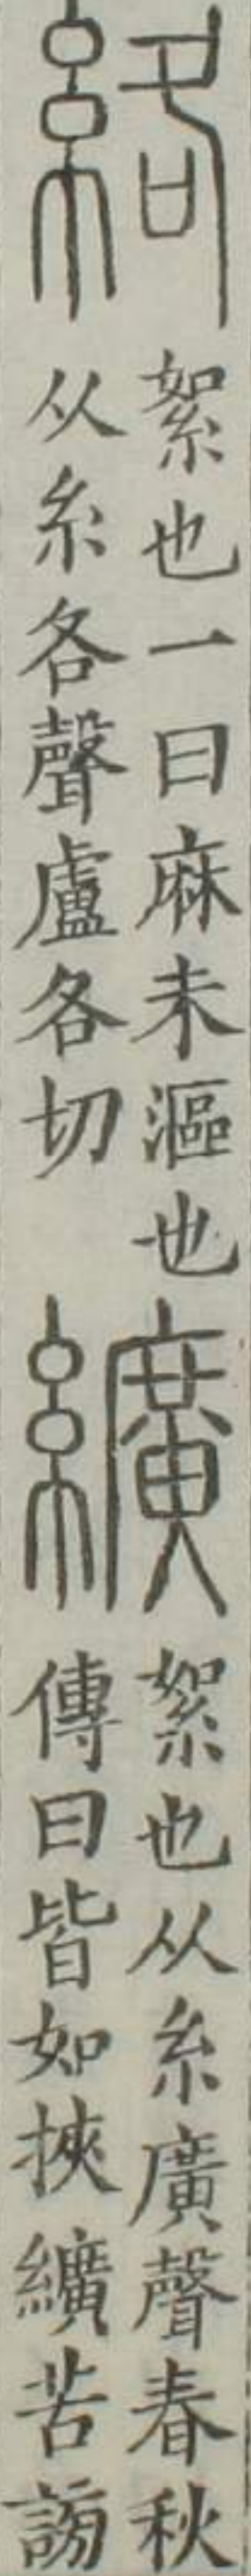 絡
絮也一曰麻未漚也
从糸各聲盧各切
纊
絮也从糸廣聲春秋
傳曰皆如挾纊苦謗